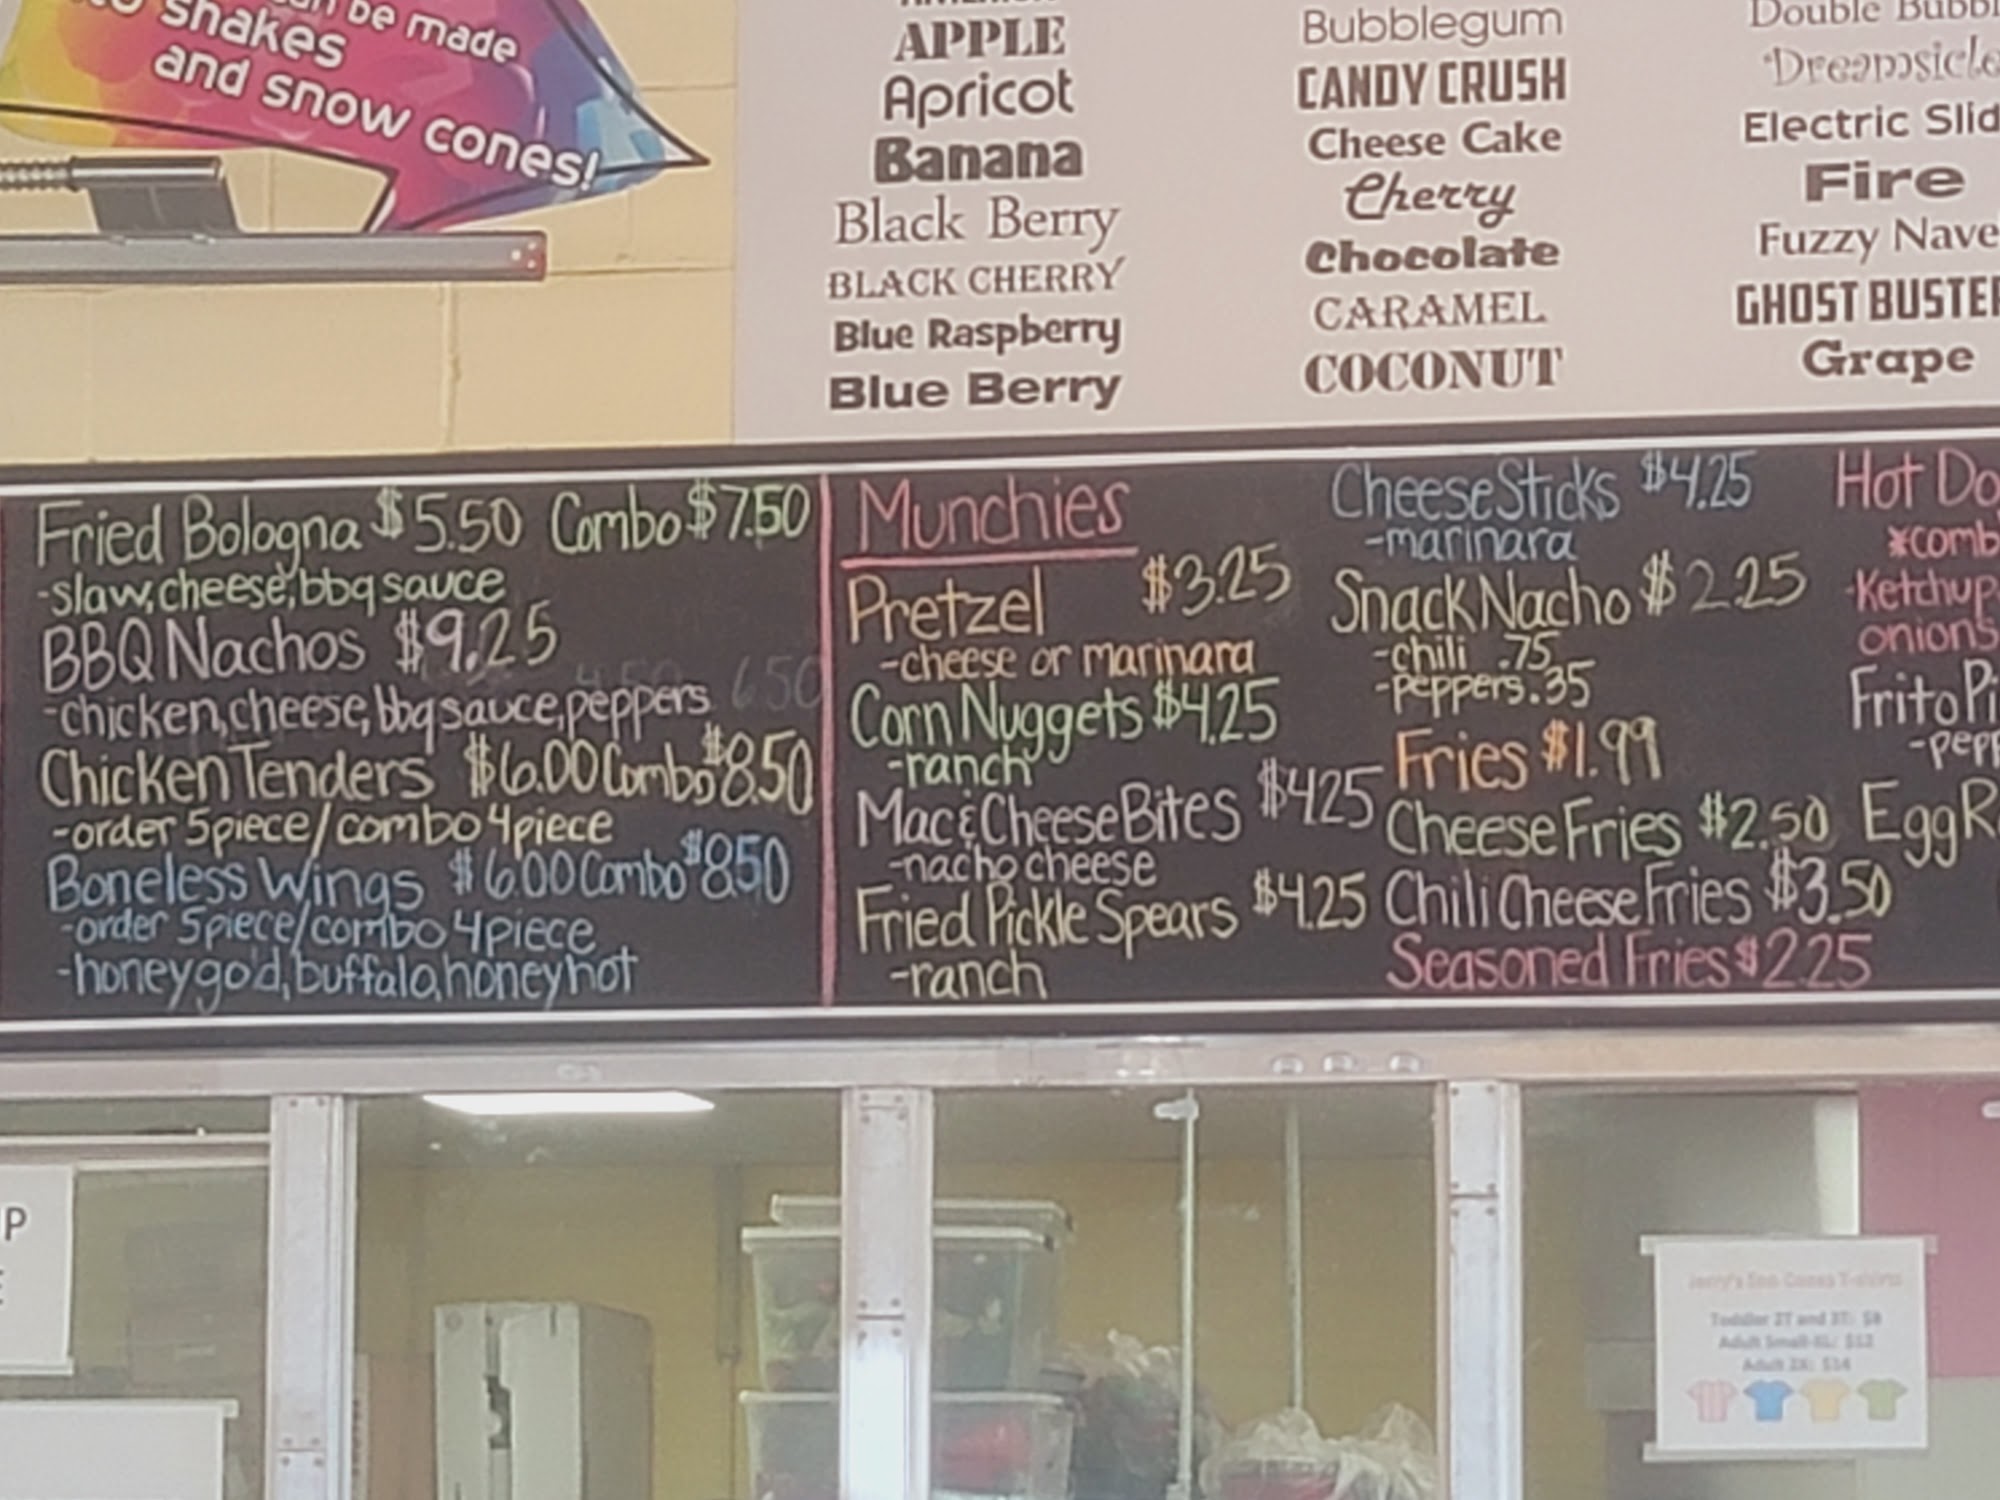 be made
shakes
and snow cones!
APPLE
Apricot
Banana
Black Berry
BLACK CHERRY
Blue Raspberry
Blue Berry
Bubblegum
CANDY CRUSH
Cheese Cake
Cherry
Chocolate
CARAMEL
COCONUT
Double
Dreamsicle
Electric Slid
Fire
Fuzzy Nave
GHOST BUSTER
Grape
Fried Bologna $5.50 Combo $7.50
-slaw, cheese, bbq sauce
BBQ Nachos $9.25
4.50 6.50
-chicken, cheese, bbq sauce, peppers
Chicken Tenders $6.00 Combo $8.50
-order 5piece/combo 4piece
Boneless Wings $6.00 Combo $8.50
-order 5piece/combo 4piece
-honey gold, buffalo, honey hot
Munchies
Pretzel $3.25
-cheese or marinara
Corn Nuggets $4.25
-ranch
Mac & Cheese Bites $4.25
-nacho cheese
Fried Pickle Spears $4.25
-ranch
Cheese Sticks $4.25
-marinara
Snack Nacho $2.25
-chili .75
-peppers .35
Fries $1.99
Cheese Fries $2.50
Chili Cheese Fries $3.50
Seasoned Fries $2.25
Hot Do
*comb
-Ketchup
onions
Frito Pi
-pepp
Egg R
P
Toddler 2T and 3T: $8
Adult Small-XL: $12
Adult 2X: $14